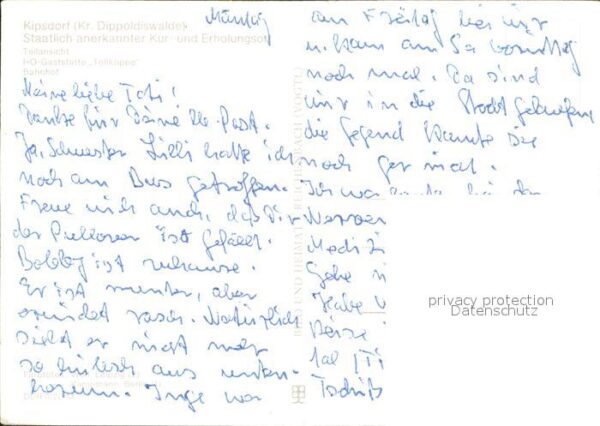 Kipsdorf (Kr. Dippoldiswalde)
Staatlich anerkannter Kur- und Erholungsort
Teilansicht
HO-Gaststätte „Tellkoppe"
Bahnhof
Montag
Meine liebe Toti!
Danke für Deine lb. Post.
Ja, Schwester Lilli hatte ich
noch am Bus getroffen.
Freue mich auch, daß Dir
der Pullover ist gefällt.
Bobby ist zuhause.
Er ist munter, aber
ermüdet rasch. Natürlich
sieht er nicht mehr
so einfach aus
Inge war
am Freitag bei mir
u. kam am Sa vormittag
noch mal. Da sind
wir in die Stadt gelaufen,
die Gegend kannte sie
noch gar nicht.
Ich war
Nerven
Medi
Gehe
Habe
BILD UND HEIMAT REICHENBACH (VOGTL)
privacy protection
Datenschutz